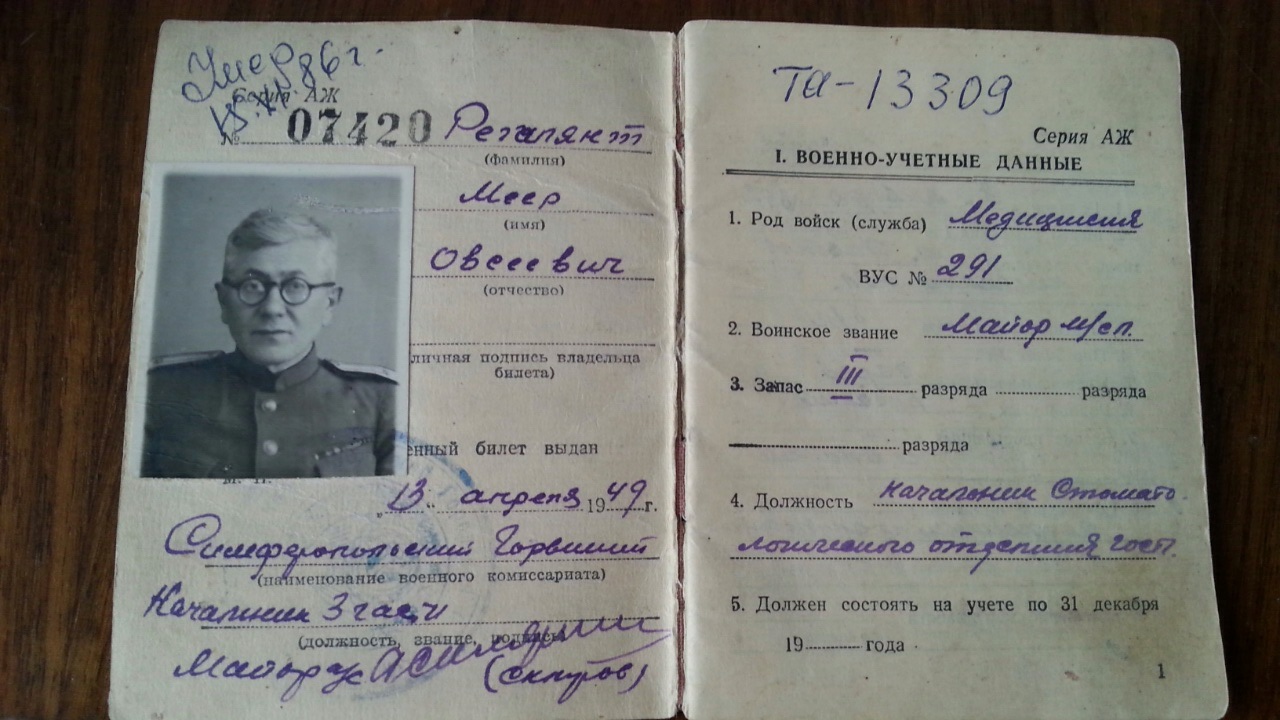 Умер 86 г.
Серия АЖ
№ 07420 Регалянт
(фамилия)
Меер
(имя)
Овсеевич
(отчество)
личная подпись владельца
билета)
енный билет выдан
М. П.
„13“ апреля 1949 г.
Симферопольский Горвоенком
(наименование военного комиссариата)
Начальник 3 части
(должность, звание, подпись)
Майор
ТА-13309
Серия АЖ
I. ВОЕННО-УЧЕТНЫЕ ДАННЫЕ
1. Род войск (служба) Медицинская
ВУС № 291
2. Воинское звание Майор м/сл.
3. Запас III разряда разряда
разряда
4. Должность Начальник Стомато
логического отделения госп.
5. Должен состоять на учете по 31 декабря
19 года
1